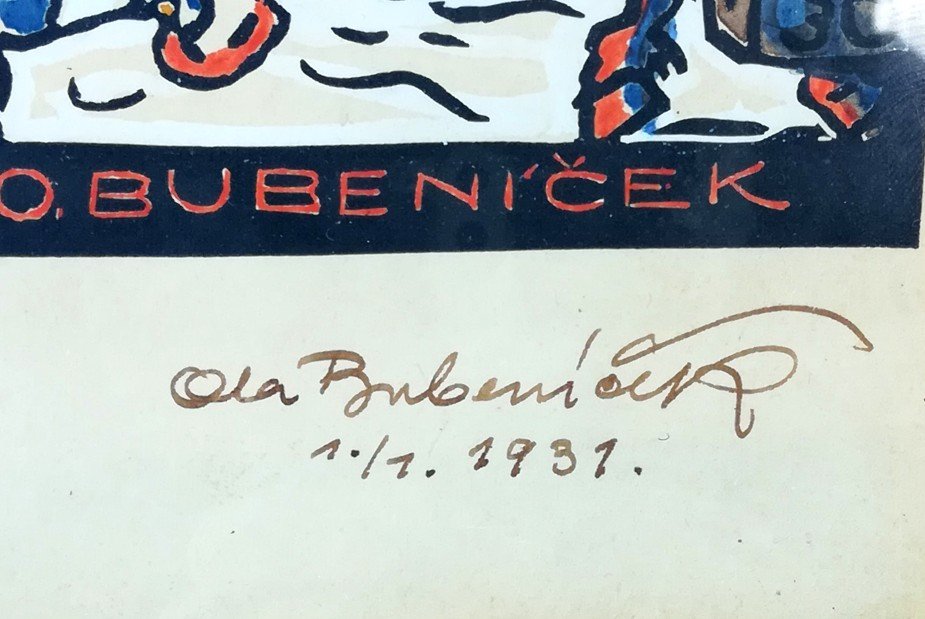 O. BUBENÍČEK
Ota Bubeníček
1./1. 1931.